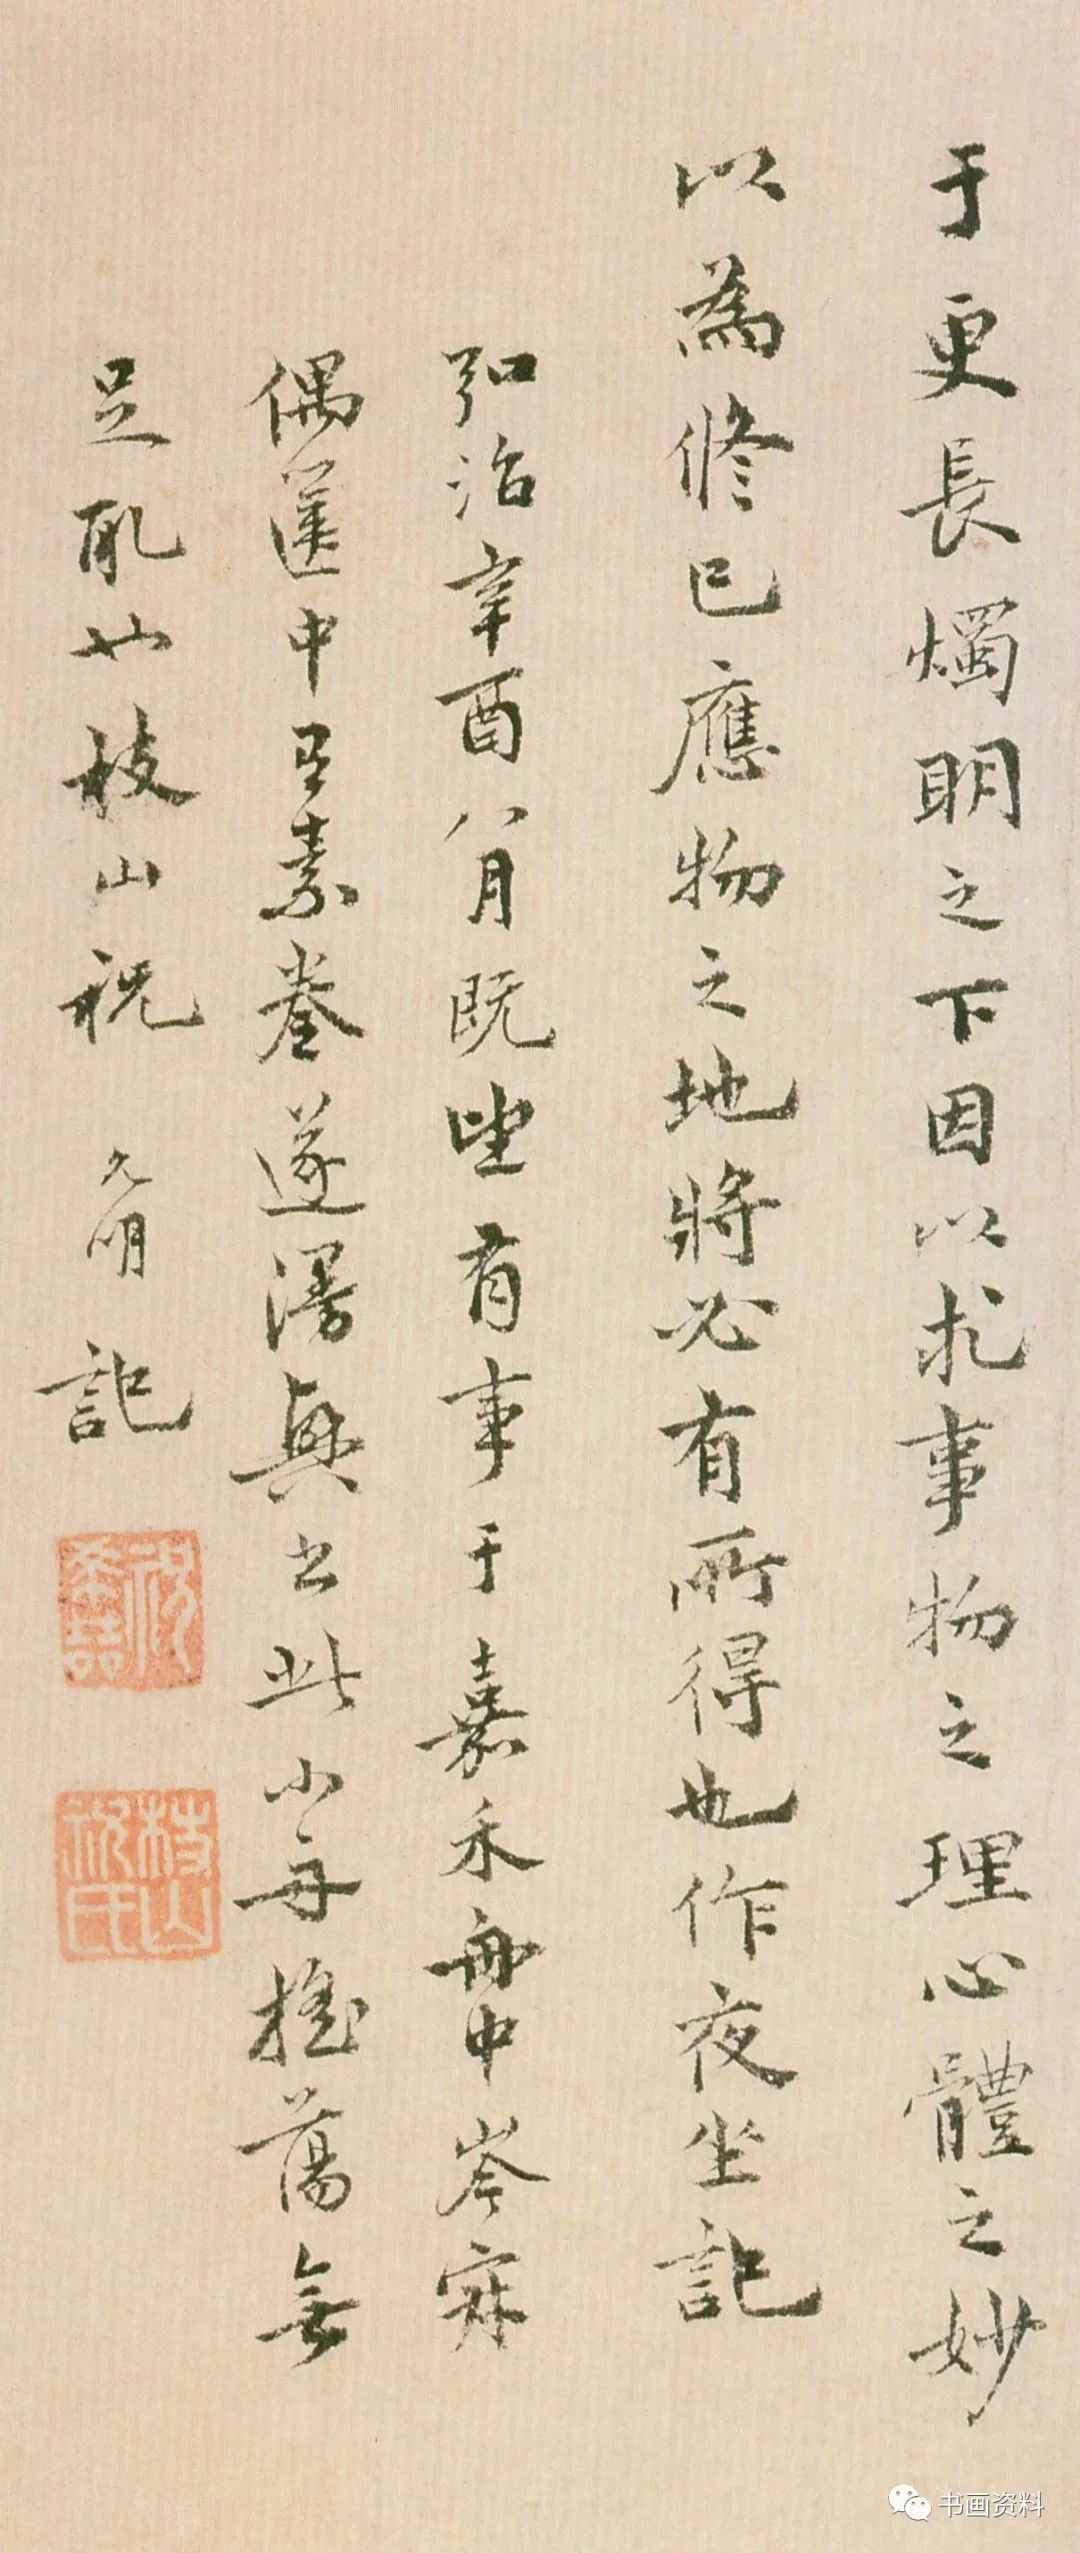 于更長燭明之下因以求事物之理心體之妙
以為修己應物之地將必有所得也作夜坐記
弘治辛酉八月既望有事于嘉禾舟中岑寂
偶篋中有素卷遂漫興書此小舟搖蕩無
足觀也枝山祝允明記
祝希哲
枝山祝氏
书画资料